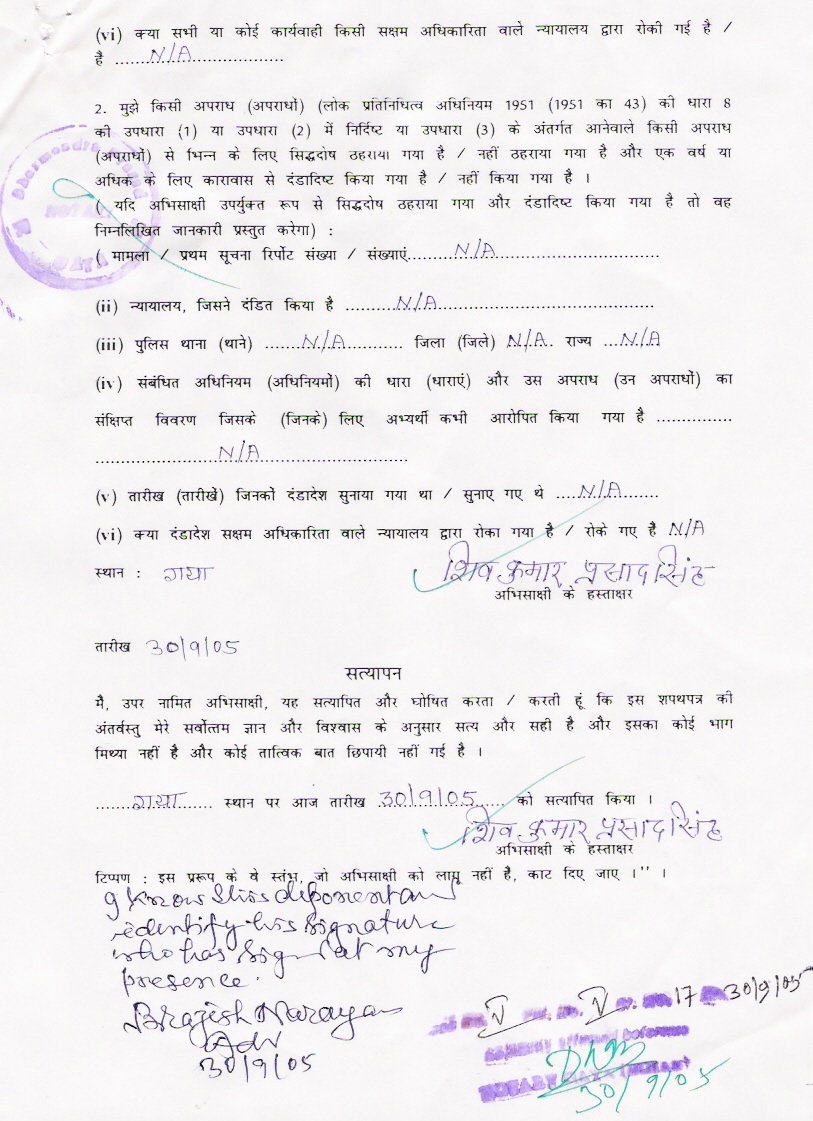 (vi) क्या सभी या कोई कार्यवाही किसी सक्षम अधिकारिता वाले न्यायालय द्वारा रोकी गई है /
है ........N/A....................
2. मुझे किसी अपराध (अपराधों) (लोक प्रतिनिधित्व अधिनियम 1951 (1951 का 43) की धारा 8
की उपधारा (1) या उपधारा (2) में निर्दिष्ट या उपधारा (3) के अंतर्गत आनेवाले किसी अपराध
(अपराधों) से भिन्न के लिए सिद्धदोष ठहराया गया है / नहीं ठहराया गया है और एक वर्ष या
अधिक के लिए कारावास से दंडादिष्ट किया गया है / नहीं किया गया है ।
( यदि अभिसाक्षी उपर्युक्त रूप से सिद्धदोष ठहराया गया और दंडादिष्ट किया गया है तो वह
निम्नलिखित जानकारी प्रस्तुत करेगा) :
( मामला / प्रथम सूचना रिर्पोट संख्या / संख्याएं.........N/A...............................
(ii) न्यायालय, जिसने दंडित किया है ..........N/A..........................................
(iii) पुलिस थाना (थाने) ........N/A............ जिला (जिले) N/A. राज्य ...N/A
(iv) संबंधित अधिनियम (अधिनियमों) की धारा (धाराएं) और उस अपराध (उन अपराधों) का
संक्षिप्त विवरण जिसके (जिनके) लिए अभ्यर्थी कभी आरोपित किया गया है ...............
........................N/A..............................
(v) तारीख (तारीखें) जिनकों दंडादेश सुनाया गया था / सुनाए गए थे ....N/A.......
(vi) क्या दंडादेश सक्षम अधिकारिता वाले न्यायालय द्वारा रोका गया है / रोके गए है N/A
स्थान : गया
शिव कुमार प्रसाद सिंह
अभिसाक्षी के हस्ताक्षर
तारीख 30/9/05
सत्यापन
मै, उपर नामित अभिसाक्षी, यह सत्यापित और घोषित करता / करती हूं कि इस शपथपत्र की
अंतर्वस्तु मेरे सर्वोत्तम ज्ञान और विश्वास के अनुसार सत्य और सही है और इसका कोई भाग
मिथ्या नहीं है और कोई तात्विक बात छिपायी नहीं गई है ।
.......गया....... स्थान पर आज तारीख 30/9/05..... को सत्यापित किया ।
शिव कुमार प्रसाद सिंह
अभिसाक्षी के हस्ताक्षर
टिप्पण : इस प्ररूप के वे स्तंभ, जो अभिसाक्षी को लागू नहीं है, काट दिए जाए ।'' ।
I know this deponent an
identify his signature
who has sign at my
presence.
Brajesh Narayan
Adv
30/9/05
17 30/9/05
30/9/05